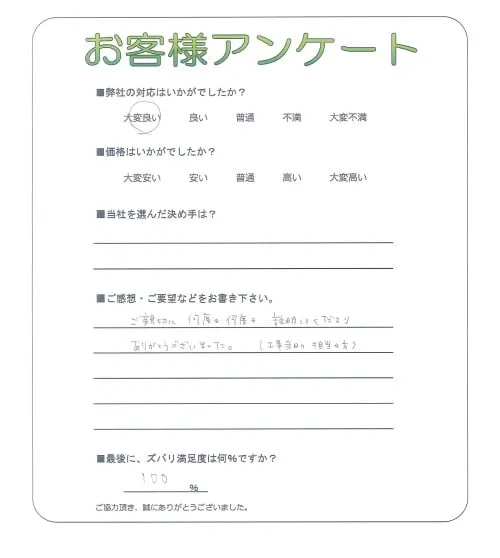 お客様アンケート
■弊社の対応はいかがでしたか？
大変良い 良い 普通 不満 大変不満
■価格はいかがでしたか？
大変安い 安い 普通 高い 大変高い
■当社を選んだ決め手は？
■ご感想・ご要望などをお書き下さい。
ご親切に 何度も 何度も 説明して下さり
ありがとうございました。 （工事当日の 担当の方）
■最後に、ズバリ満足度は何%ですか？
100 %
ご協力頂き、誠にありがとうございました。